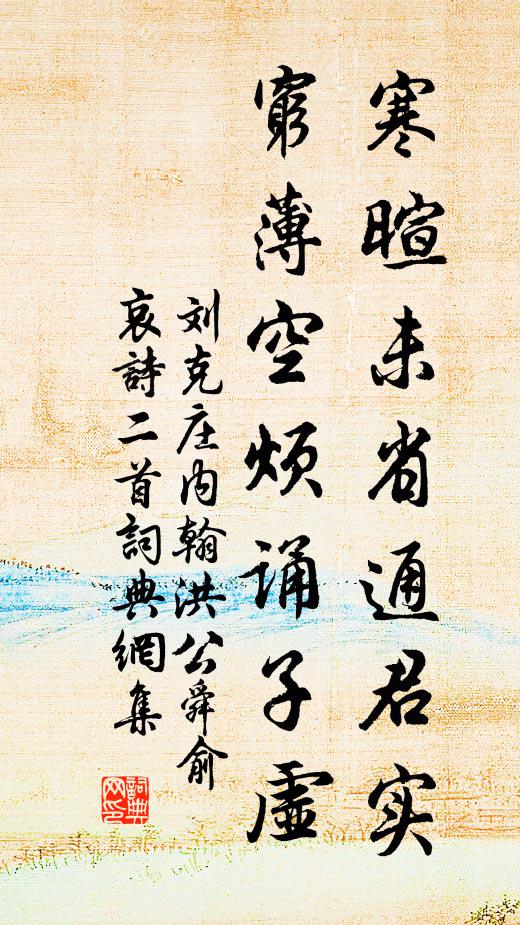 寒暄未省通君实
窮薄空烦诵子虛
刘克庄内翰洪公舜俞
哀詩二首詞典網集
詞典
网印